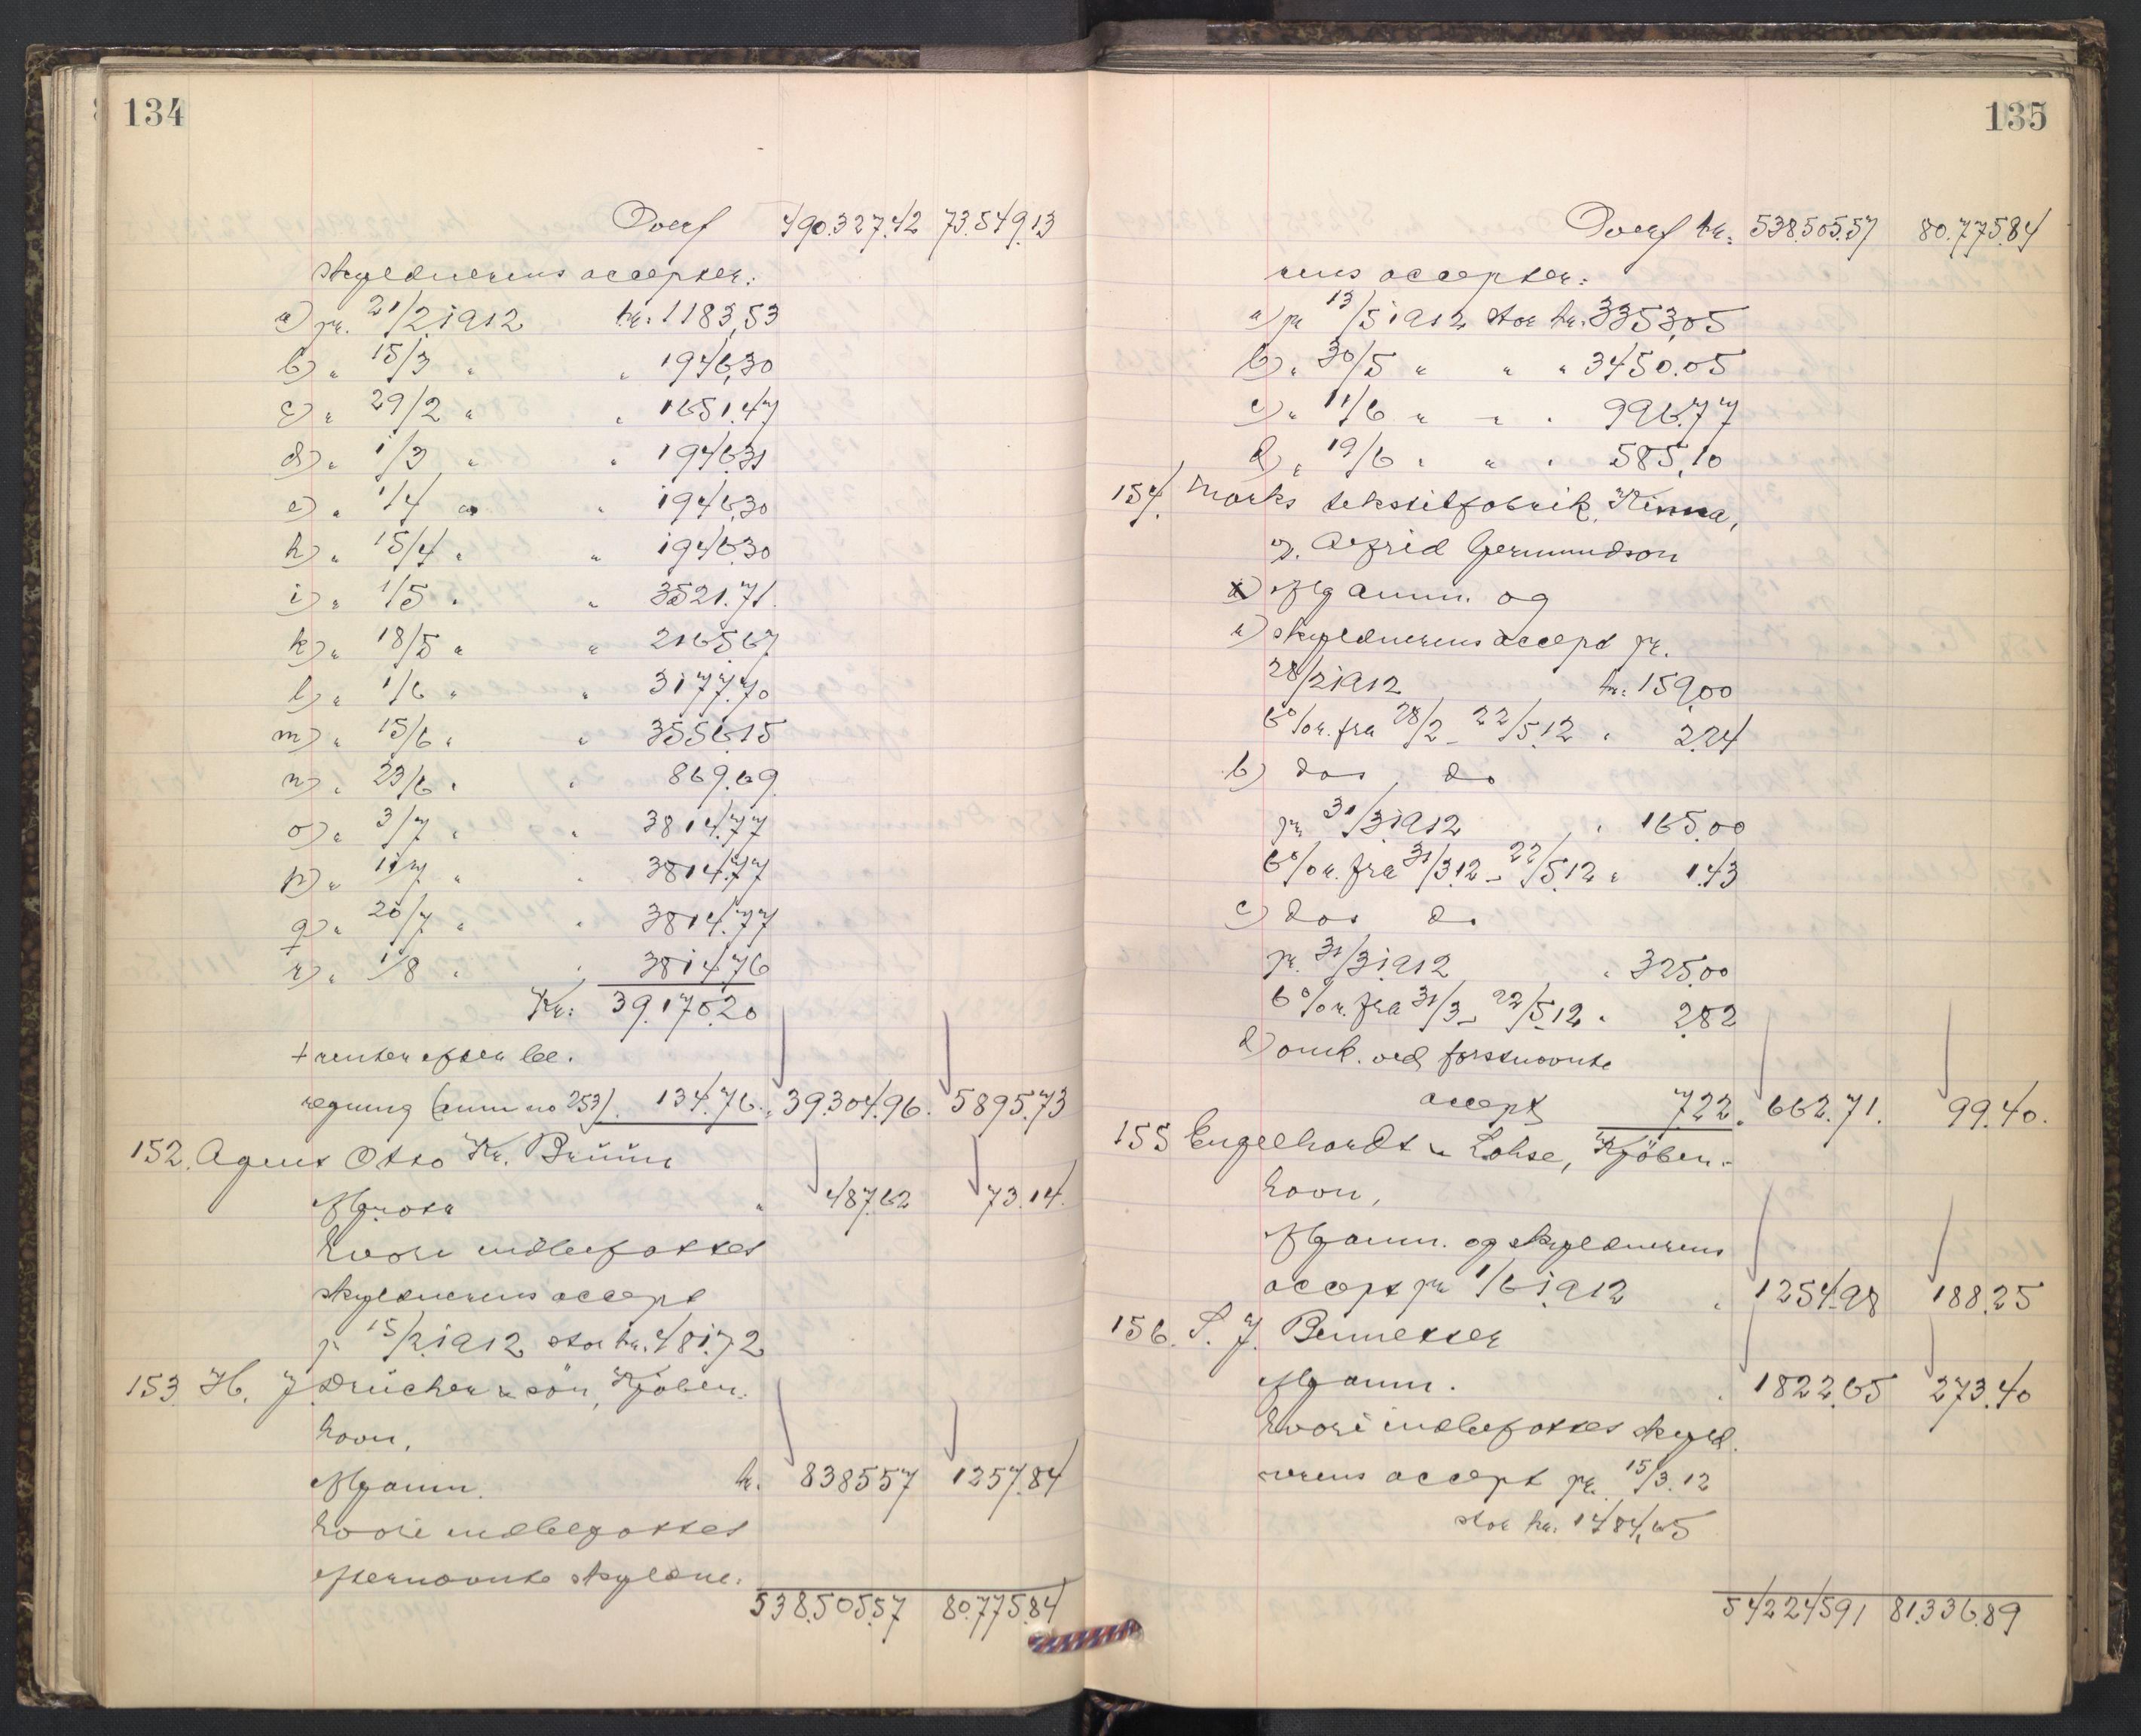 134
Overf 490.327.42 73.549.13
skyldnerens accepter:
a) pr. 21/2 1912 kr. 1183,53
b) " 15/3 " " 1946,30
c) " 29/2 " " 1651.47
d) " 1/3 " " 1946.31
e) " 1/4 " " 1946.30
h) " 15/4 " " 1946.30
i) " 1/5 " " 3521.71
k) " 18/5 " " 2165.67
l) " 1/6 " " 3177.70
m) " 15/6 " " 3556.15
n) " 23/6 " " 869.69
o) " 3/7 " " 3814.77
p) " 11/7 " " 3814.77
q) " 20/7 " " 3814.77
r) " 1/8 " " 3814.76
Kr: 39.170.20
+ renter efter be.
regning (anm no 253) 134.76. " 39.304.96. 5895.73
152. Agent Otto Kr. Brüün
Ifg. nota " 487.62 73.14.
hvori indbefattes
skyldnerens accept
pr 15/2 1912 stor kr. 481.72
153 H. J. Drücker & sön, Kjöben-
havn,
Ifg anm. kr. 8385.57 1257.84
hvori indbefattes
efternævnte skyldne-
538.505.57 80.775.84
135
Overf kr: 538.505.57 80.775.84
rens accepter:
a) pr 13/5 1912 stor kr. 3353,05
b) " 30/5 " " " 3450.05
c) " 11/6 " " " 996.77
d) " 19/6 " " " 585,10
154. Marks tekstilfabrik, Kinna,
v. Alfrid Germundson
Ifg anm. og
a) skyldnerens accept pr.
28/2 1912 kr. 159,00
6 % r. fra 28/2 - 22/5.12 " 2.24
b) das do
pr. 31/3 1912 " 165.00
6 % r. fra 31/3.12 - 22/5.12 " 1.43
c) das do
pr. 31/3 1912 " 325.00
6 % r. fra 31/3 - 22/5.12 " 2.82
d) omk. ved förstnævnte
accept 7.22. " 662.71. 99.40.
155 Engelhardt & Lohse, Kjöben-
havn,
Ifg anm. og skyldnerens
accept pr 1/6 1912 " 1254.98 188.25
156. S. J. Bennetter
Ifg anm. " 1822.65 273.40
hvori indbefattes skyld-
nerens accept pr. 15/3.12
stor kr. 1484,65
542.245.91 81.336.89